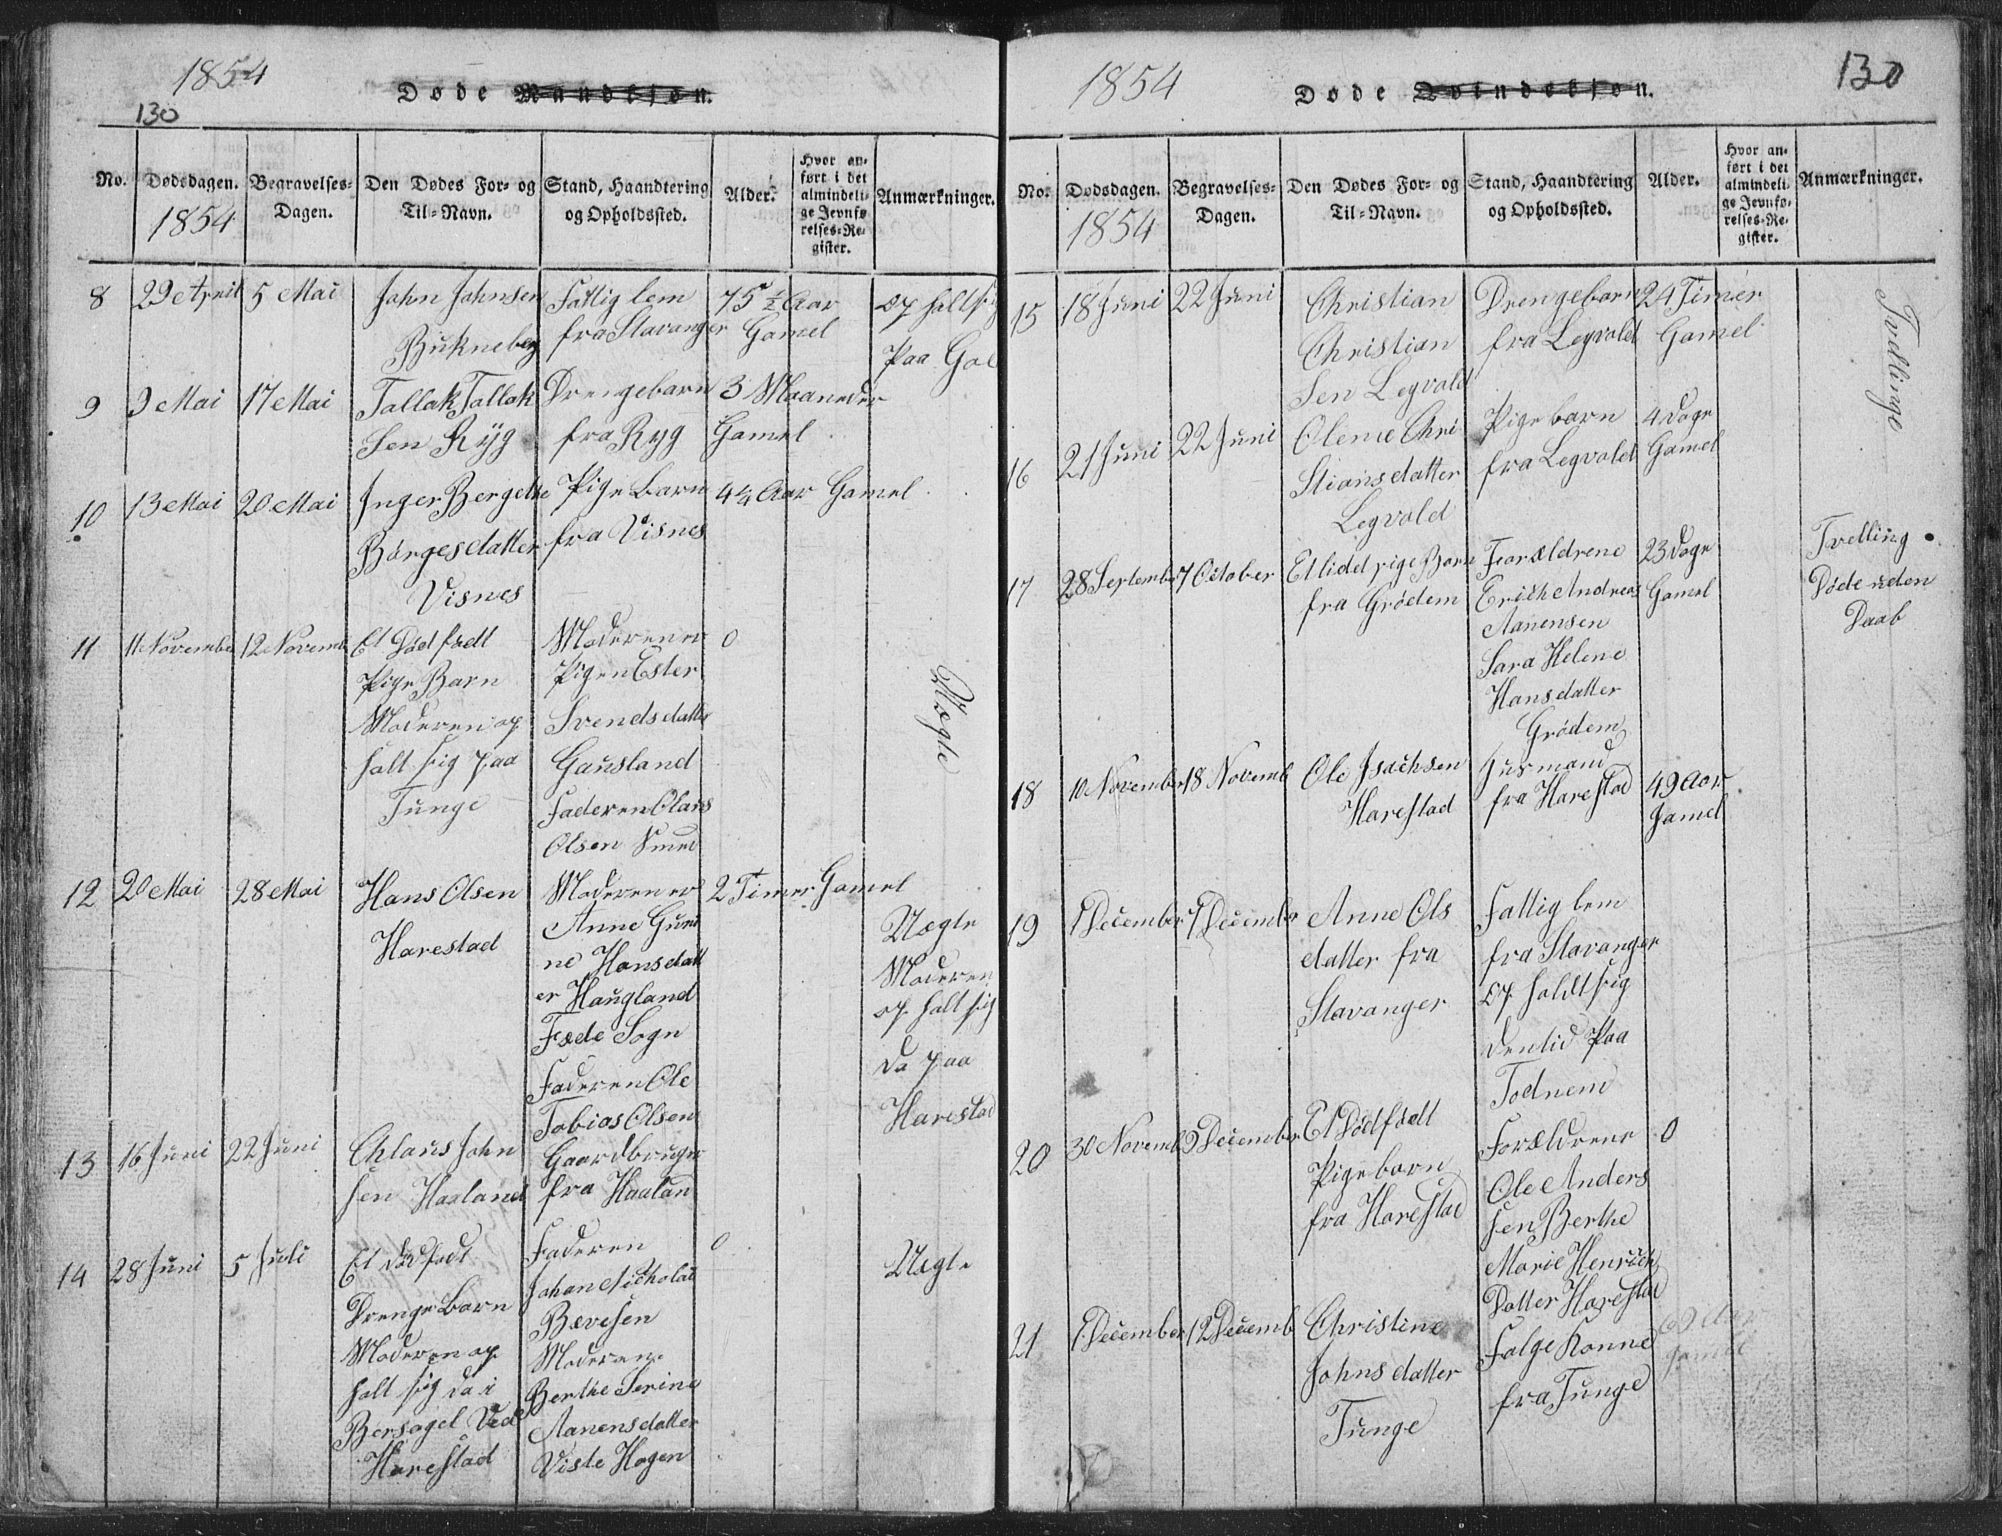 1854
130
Døde Mandkjøn.
No.
Dødsdagen.
1854
Begravelses-
Dagen.
Den Dødes For- og
Til-Navn.
Stand, Haandtering
og Opholdssted.
Alder.
Hvor an-
ført i det
almindeli-
ge Jevnfø-
relses-Re-
gister.
Anmærkninger.
8
29 April
5 Mai
John Johnsen
Bukneberg
Fattig lem
fra Stavanger
75 1/2 Aar
Gamel
op holt sig
Paa Gol
9
9 Mai
17 Mai
Tallak Tallak
Sen Ryg
Drengebarn
fra Ryg
3 Maaneder
Gamel
10
13 Mai
20 Mai
Inger Bergette
Børgesdatter
Visnes
Pige Barn
fra Visnes
Aar Gamel
11
11 November
12 Novemb
Et Død født
Pige Barn
Moderen op
holt sig paa
Tunge
Moderen er
Pigen Ester
Svendsdatter
Gausland
Faderen Olaus
Olsen
0
Uægte
12
20 Mai
28 Mai
Hans Olsen
Harestad
Moderen er
Anne Gun
ne Hansdatt
er Haugland
Fæde Sogn
Faderen Ole
Tobias Olsen
2 Timer Gamel
Uægte
Moderen
op holt sig
da paa
Harestad
13
16 Juni
22 Juni
Chlaus John
sen Haaland
Gaardbruger
fra Haalan
14
28 Juni
5 Juli
Et død født
Drenge Barn
Moderen op
holt sig da i
Bersagel Ved
Harestad
Faderen
Johan Nicholai
Bævesen
Moderen
Berthe Serine
Aanensdatter
Viste Hagen
0
Uægte
1854
Døde Qvindekjøn.
130
No.
Dødsdagen.
1854
Begravelses-
Dagen.
Den Dødes For- og
Til-Navn.
Stand, Haandtering
og Opholdssted.
Alder.
Hvor an-
ført i det
almindeli-
ge Jevnfø-
relses-Re-
gister.
Anmærkninger.
15
18 Juni
22 Juni
Christian
Christian
Sen Legvold
Drengebarn
fra Legvold
24 Timer
Gamel
Tvillinge
16
21 Juni
22 Juni
Olene Chri
Stiansdatter
Legvold
Pigebarn
fra Legvold
4 Dage
Gamel
17
28 September
7 October
Et lidet pige Barn
fra Grødem
Forældrene
Erich Andreas
Aanensen
Sara Helene
Hansdatter
Grødem
23 Dage
Gamel
Tvelling
Døde uden
Daab
18
10 November
18 Novemb
Ole Isachsen
Harestad
Husmand
fra Harestad
49 Aar
Gamel
19
1 December
7 Decembr
Anne Ols
datter fra
Stavanger
Fattig lem
fra Stavanger
op holdt sig
den tid Paa
Todnem
20
30 Novemb
9 December
Et Død født
Pigebarn
fra Harestad
Forældrene
Ole Anders
sen Berthe
Marie Henrich
Datter Harestad
0
21
December
12 Decemb
Christine
Johnsdatter
Tunge
Følge Konne
fra Tunge
Aar
Gamel